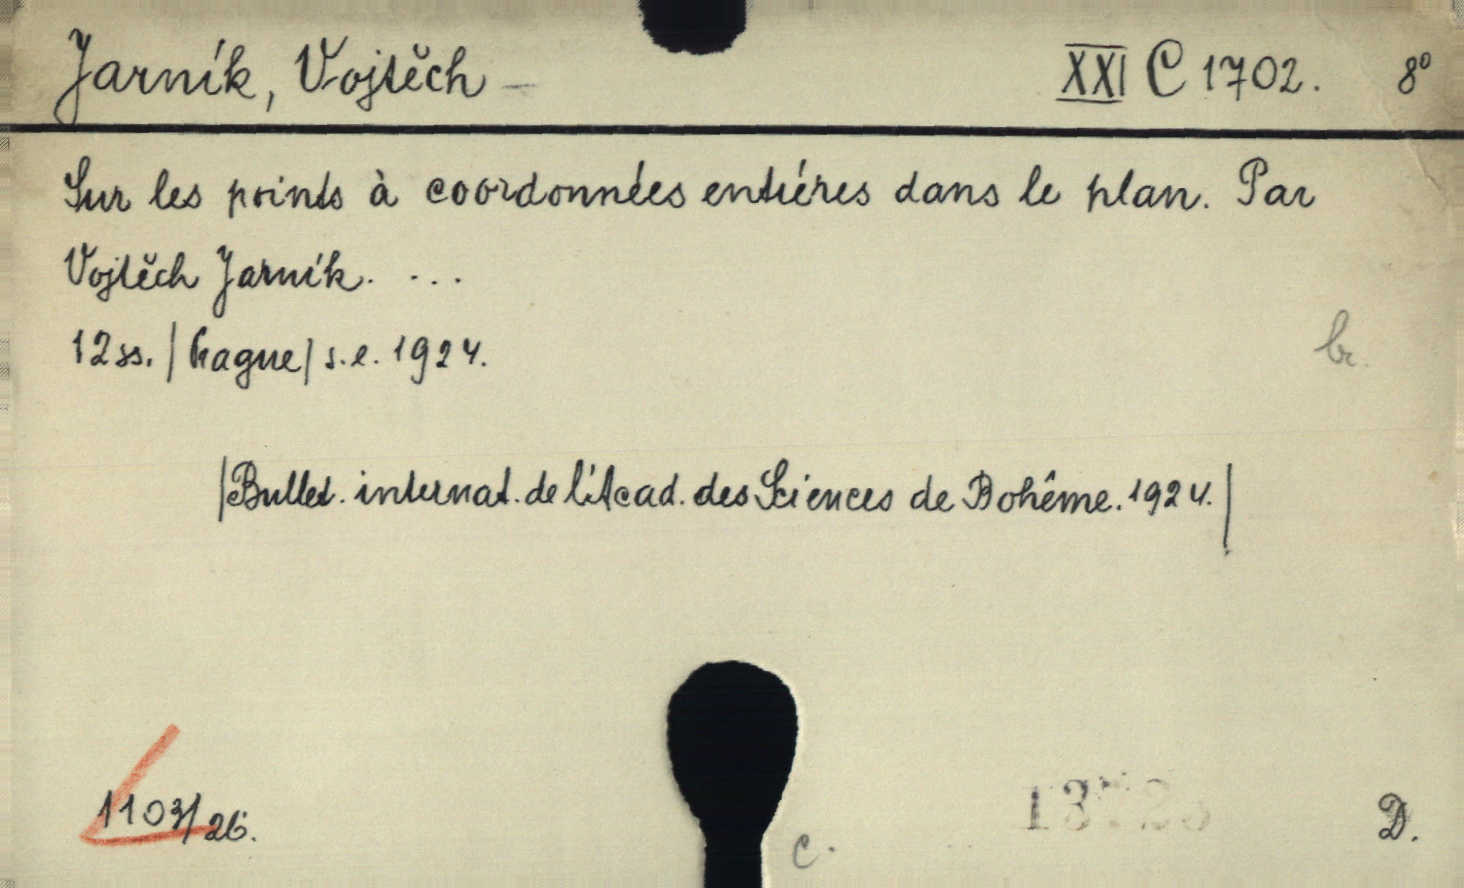 Jarník, Vojtěch XXI C 1702. 8°
Sur les points à coordonnées entiéres dans le plan. Par
Vojtěch Jarník. ...
12 ss. | Prague | s.e. 1924.
br.
| Bullet. internat. de l'Acad. des Sciences de Bohême. 1924. |
1103/26.
c.
D.